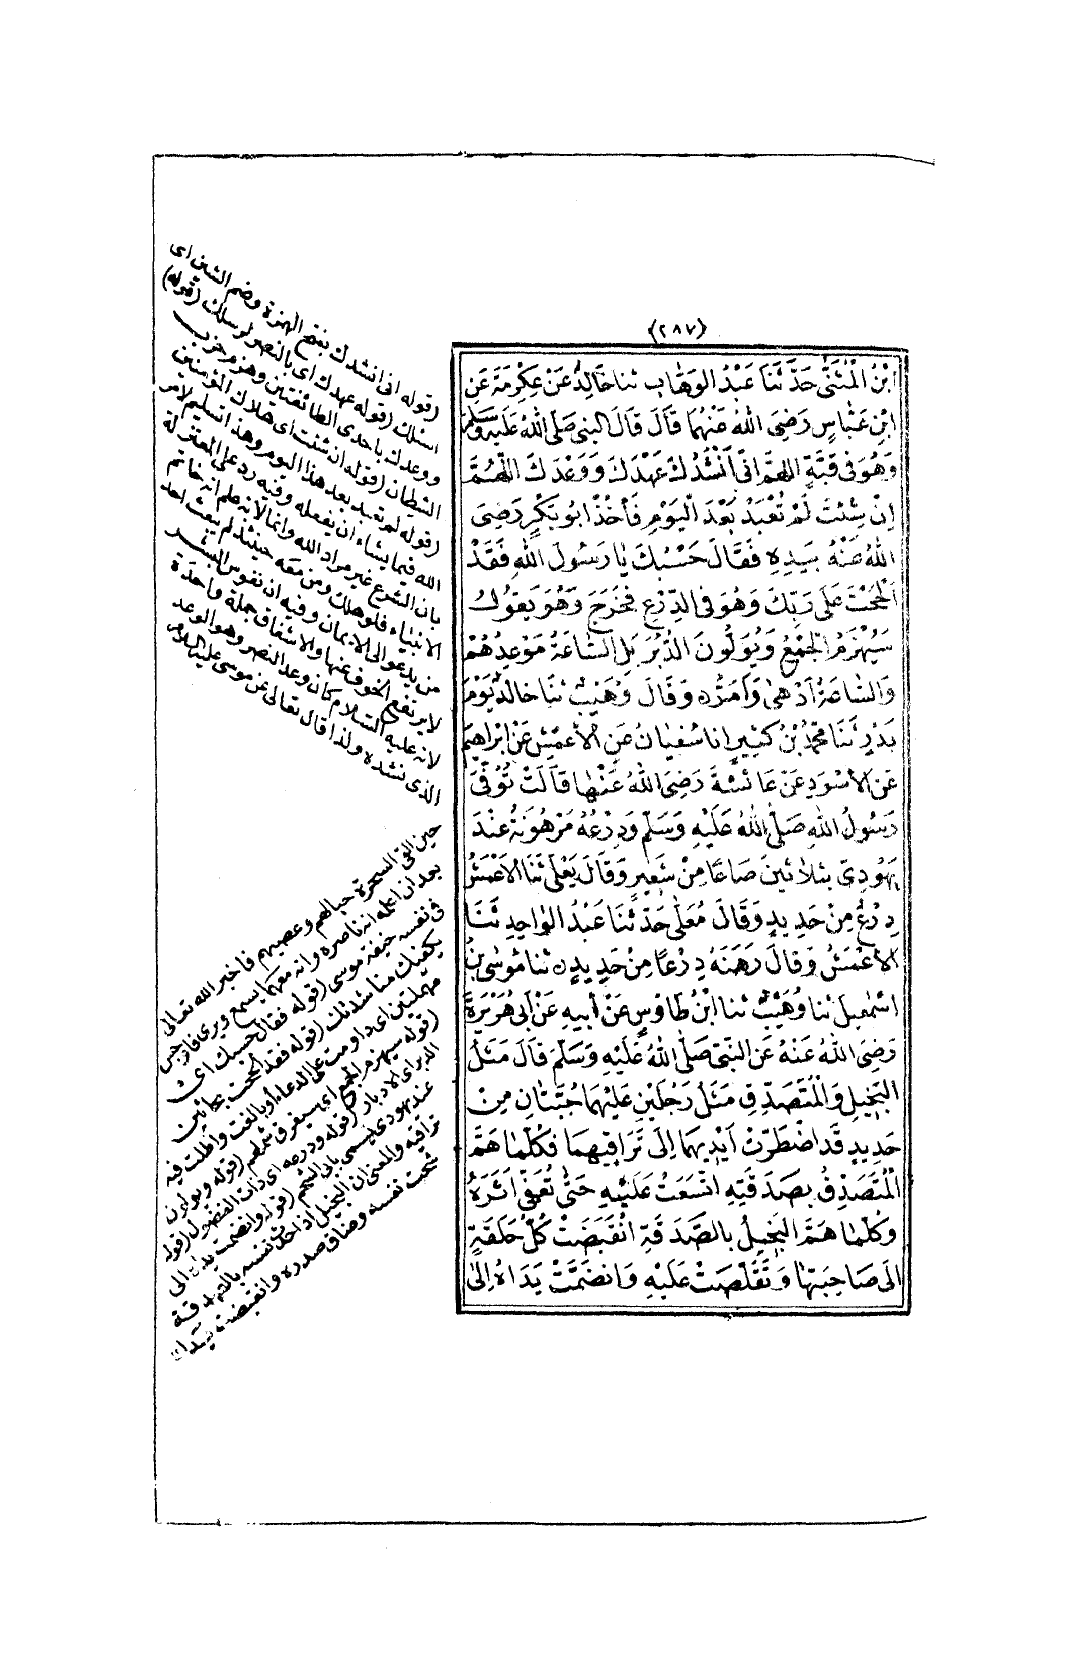 (٢٨٧)
ابْنُ الْمُثَنَّى حَدَّثَنَا عَبْدُ الوَهَّابِ ثنا خَالِدٌ عَنْ عِكْرِمَةَ عَنِ
ابْنِ عَبَّاسٍ رَضِيَ اللهُ عَنْهُمَا قَالَ قَالَ النبى صَلَّى اللهُ عَلَيْهِ وَسَلَّمَ
وَهُوَ فِى قُبَّةٍ اللهُمَّ انِّى أَنْشُدُكَ عَهْدَكَ وَوَعْدَكَ اللّٰهُمَّ
اِنْ شِئْتَ لَمْ تُعْبَدْ بَعْدَ الْيَوْمِ فَأَخَذَ ابُو بَكْرٍ رَضِىَ
اللهُ عَنْهُ بِيَدِهِ فَقَالَ حَسْبُكَ يَا رَسُولَ اللهِ فَقَدْ
اَلْحَحْتَ عَلَى رَبِّكَ وَهُوَ فِى الدِّرْعِ فَخَرَجَ وَهُوَ يَقُولُ
سَيُهْزَمُ الْجَمْعُ وَيُوَلُّونَ الدُّبُرَ بَلِ السَّاعَةُ مَوْعِدُهُمْ
وَالسَّاعَةُ اَدْهَى وَاَمَرُّ وَقَالَ وُهَيْبٌ ثنَا خَالِدٌ يَوْمَ
بَدْرٍ ثَنَا مُحَمَّدُ بْنُ كَثِيرٍ انا سُفْيَانُ عَنِ الأَعْمَشِ عَنْ اِبْرَاهِيمَ
عَنِ الأَسْوَدِ عَنْ عَائِشَةَ رَضِىَ اللهُ عَنْهَا قَالَتْ تُوُفِّىَ
رَسُولُ اللهِ صَلَّى اللهُ عَلَيْهِ وَسَلَّمَ وَدِرْعُهُ مَرْهُونَةٌ عِنْدَ
يَهُودِىّ بِثَلَاثِينَ صَاعًا مِنْ شَعِيرٍ وَقَالَ يَعْلَى ثَنَا الأَعْمَشُ
دِرْعٌ مِنْ حَدِيدٍ وَقَالَ مُعَلَّى حَدَّثَنَا عَبْدُ الوَاحِدِ ثَنَا
الأَعْمَشُ وَقَالَ رَهَنَهُ دِرْعًا مِنْ حَدِيدٍ ثنا مُوسَى بْنُ
اسْمٰعِيلَ ثنا وُهَيْبٌ ثنا ابْنُ طَاوُسٍ عَنْ أَبِيهِ عَنْ أَبِى هُرَيْرَةَ
رَضِىَ اللهُ عَنْهُ عَنِ النَّبِىّ صَلَّى اللهُ عَلَيْهِ وَسَلَّمَ قَالَ مَثَلُ
الْبَخِيلِ وَالْمُتَصَدِّقِ مَثَلُ رَجُلَيْنِ عَلَيْهِمَا جُبَّتَانِ مِنْ
حَدِيدٍ قَدِ اضْطَرَّتْ اَيْدِيَهُمَا اِلَى تَرَاقِيهِمَا فَكُلَّمَا هَمَّ
الْمُتَصَدِّقُ بِصَدَقَتِهِ اتَّسَعَتْ عَلَيْهِ حَتَّى تُعَفِّىَ اَثَرَهُ
وَكُلَّمَا هَمَّ الْبَخِيلُ بِالصَّدَقَةِ انْقَبَضَتْ كُلُّ حَلَقَةٍ
اِلَى صَاحِبَتِهَا وَتَقَلَّصَتْ عَلَيْهِ وَانْضَمَّتْ يَدَاهُ اِلَى
(قوله انى انشدك بفتح الهمزة وضم الشين اى
اسئلك (قوله عهدك اى بالنصر لرسلك (قوله)
ووعدك باحدى الطائفتين وهزم حزب
الشيطان (قوله ان شئت اى هلاك المؤمنين
(قوله لم تعبد بعد هذا اليوم وهذا تسليم لامر
الله فيما يشاء ان يفعله وفيه رد على المعتزلة
بان الشرع غير مراد الله وانما لانه علم انه خاتم
الانبياء فلو هلك ومن معه حينئذ لم يبعث احد
من يدعو الى الايمان وفيه ان نفوس البشر
لا يرتفع الخوف عنها والاشفاق جملة واحدة
لانه عليه السلام كان وعد النصر وهو الوعد
الذى نشده ولذا قال تعالى عن موسى عليه السلام
حين القى السحرة حبالهم وعصيهم فاخبر الله تعالى
بعد ان اعلمه انه ناصره وانه معهما يسمع ويرى فاوجس
فى نفسه خيفة موسى (قوله فقال حسبك اى
يكفيك مناشدتك (قوله فقد الححت بحائين
مهملتين اى داومت على الدعاء أو بالغت واطلت فيه
(قوله سيهزم الجمع اى سيفرق شملهم (قوله ويولون
الدبر اى الادبار (قوله ودرعه اى ذات الفضول (قوله
عند يهودى يسمى بابى الشحم (قوله وانضمت يداه الى
تراقيه والمعنى ان البخيل اذا حدث نفسه بالصدقة
شحت نفسه وضاق صدره وانقبضت يداه